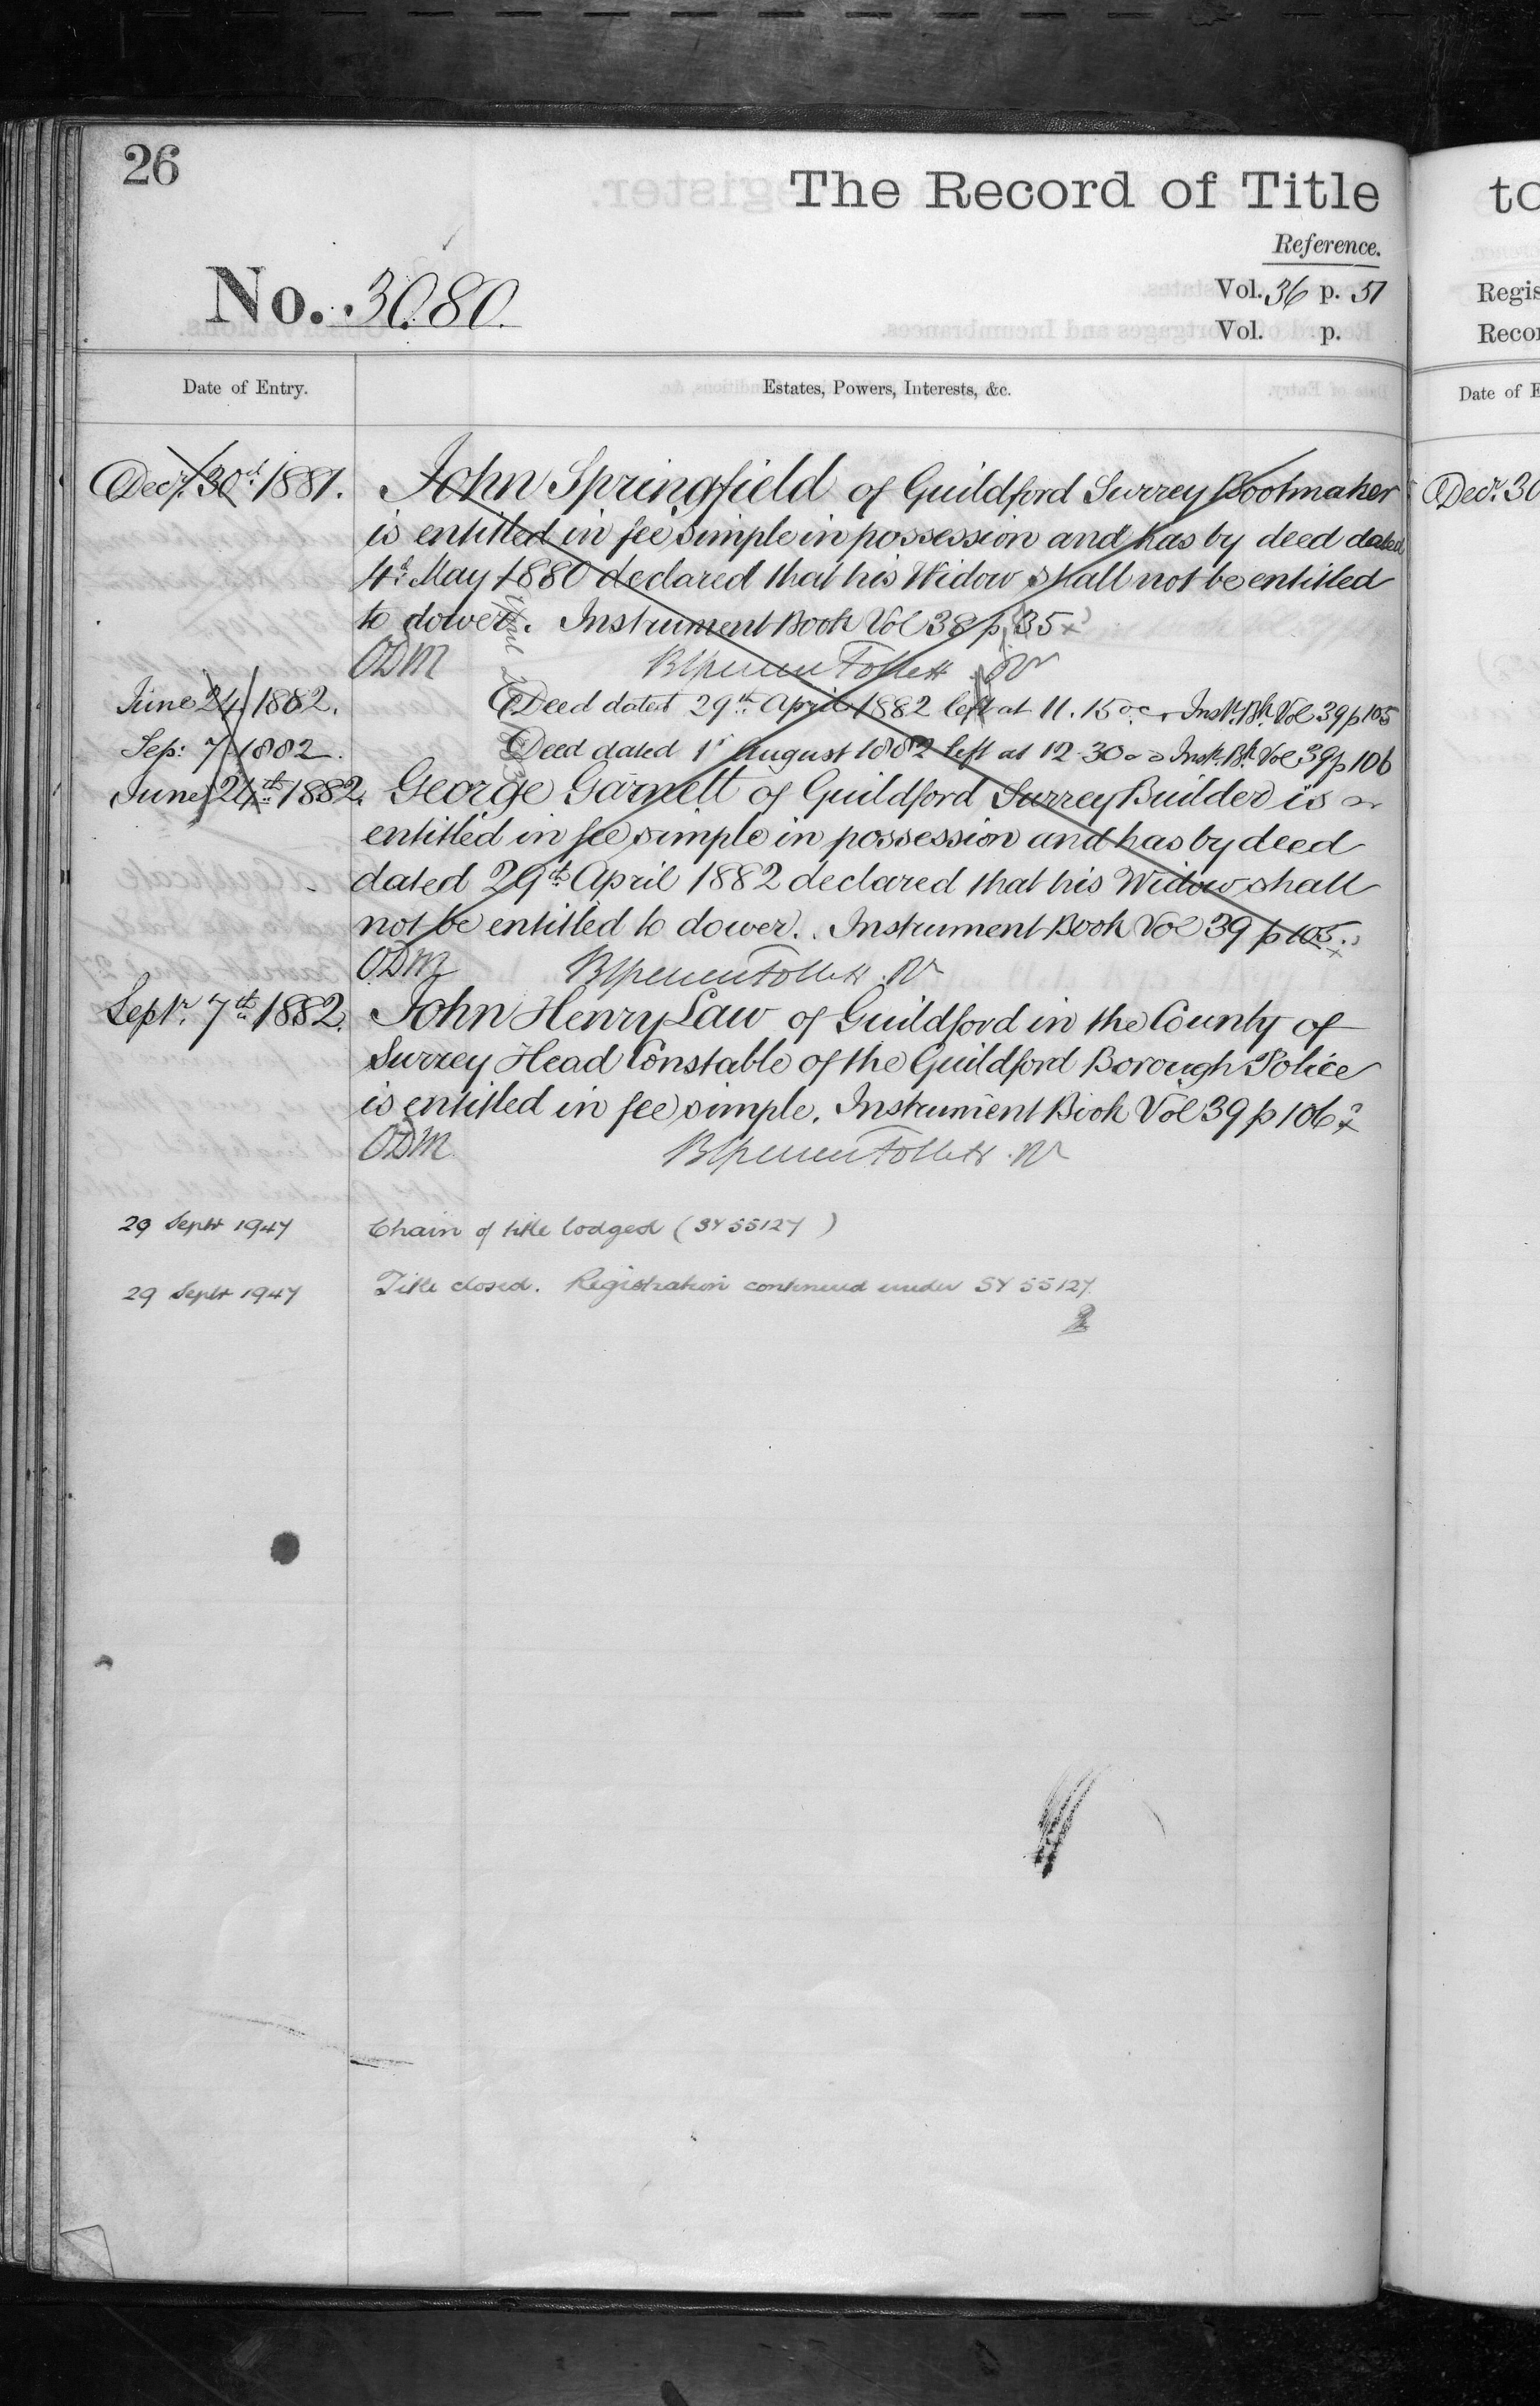 26
The Record of Title
Reference.
No. 3080.
Vol. 36 p. 51
Vol. p.
Date of Entry.
Estates, Powers, Interests, &c.
Decr. 30th 1881.
John Springfield of Guildford Surrey Bootmaker
is entitled in fee simple in possession and has by deed dated
4th May 1880 declared that his Widow shall not be entitled
to dower. Instrument Book Vol 38 p 35
ODM
June 24 1882.
Deed dated 29th April 1882 left at 11.15 Inst. Bk. Vol 39 p 105
Sep: 7 1882.
Deed dated 1st August 1882 left at 12-30 Inst. Bk Vol 39 p 106
June 24th 1882.
George Garnett of Guildford Surrey Builder is
entitled in fee simple in possession and has by deed
dated 29th April 1882 declared that his Widow shall
not be entitled to dower. Instrument Book Vol 39 p 105.
ODM
Septr. 7th 1882.
John Henry Law of Guildford in the County of
Surrey Head Constable of the Guildford Borough Police
is entitled in fee simple. Instrument Book Vol 39 p 106
ODM
29 Septr 1947
Chain of title lodged (SY 55127)
29 Septr 1947
Title closed. Registration continued under SY 55127.
to
Regis
Recor
Date of E
Decr. 30